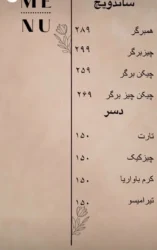 ME
NU
ساندویچ
همبرگر ۲۸۹
چیزبرگر ۲۹۹
چیکن برگر ۲۵۹
چیکن چیز برگر ۲۶۹
دسر
تارت ۱۵۰
چیزکیک ۱۵۰
کرم باواریا ۱۵۰
تیرامیسو ۱۵۰